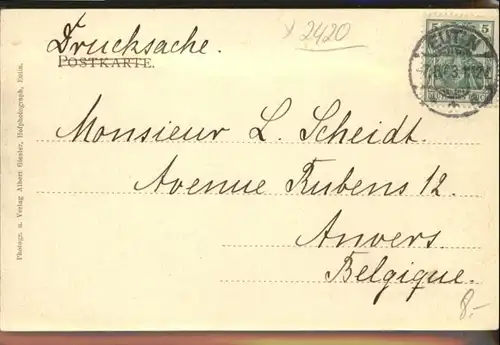 Drucksache.
x 2420
POSTKARTE.
5 5
EUTIN
Monsieur L. Scheidt.
Avenue Rubens 12.
Anvers.
Belgique.
8.-
Photogr. u. Verlag Albert Giesler, Hofphotograph, Eutin.